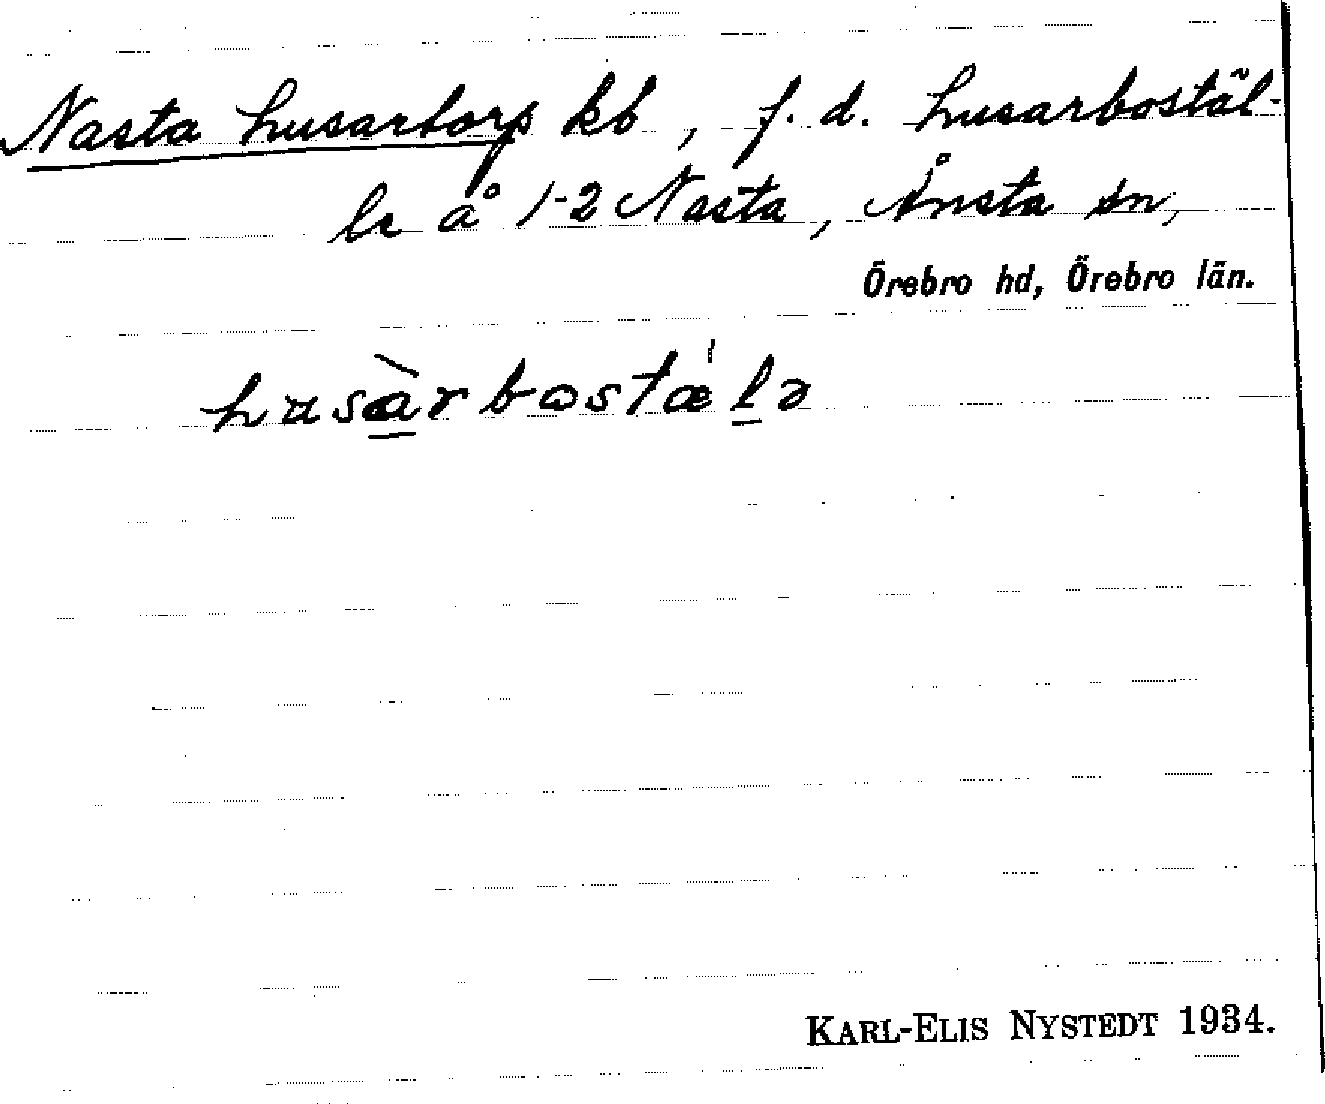 Nasta husartorp kb, f. d. husarbostäl-
le å 1-2 Nasta, Ånsta sn,
Örebro hd, Örebro län.
hʉsàrbostæ̍lə
KARL-ELIS NYSTEDT 1934.